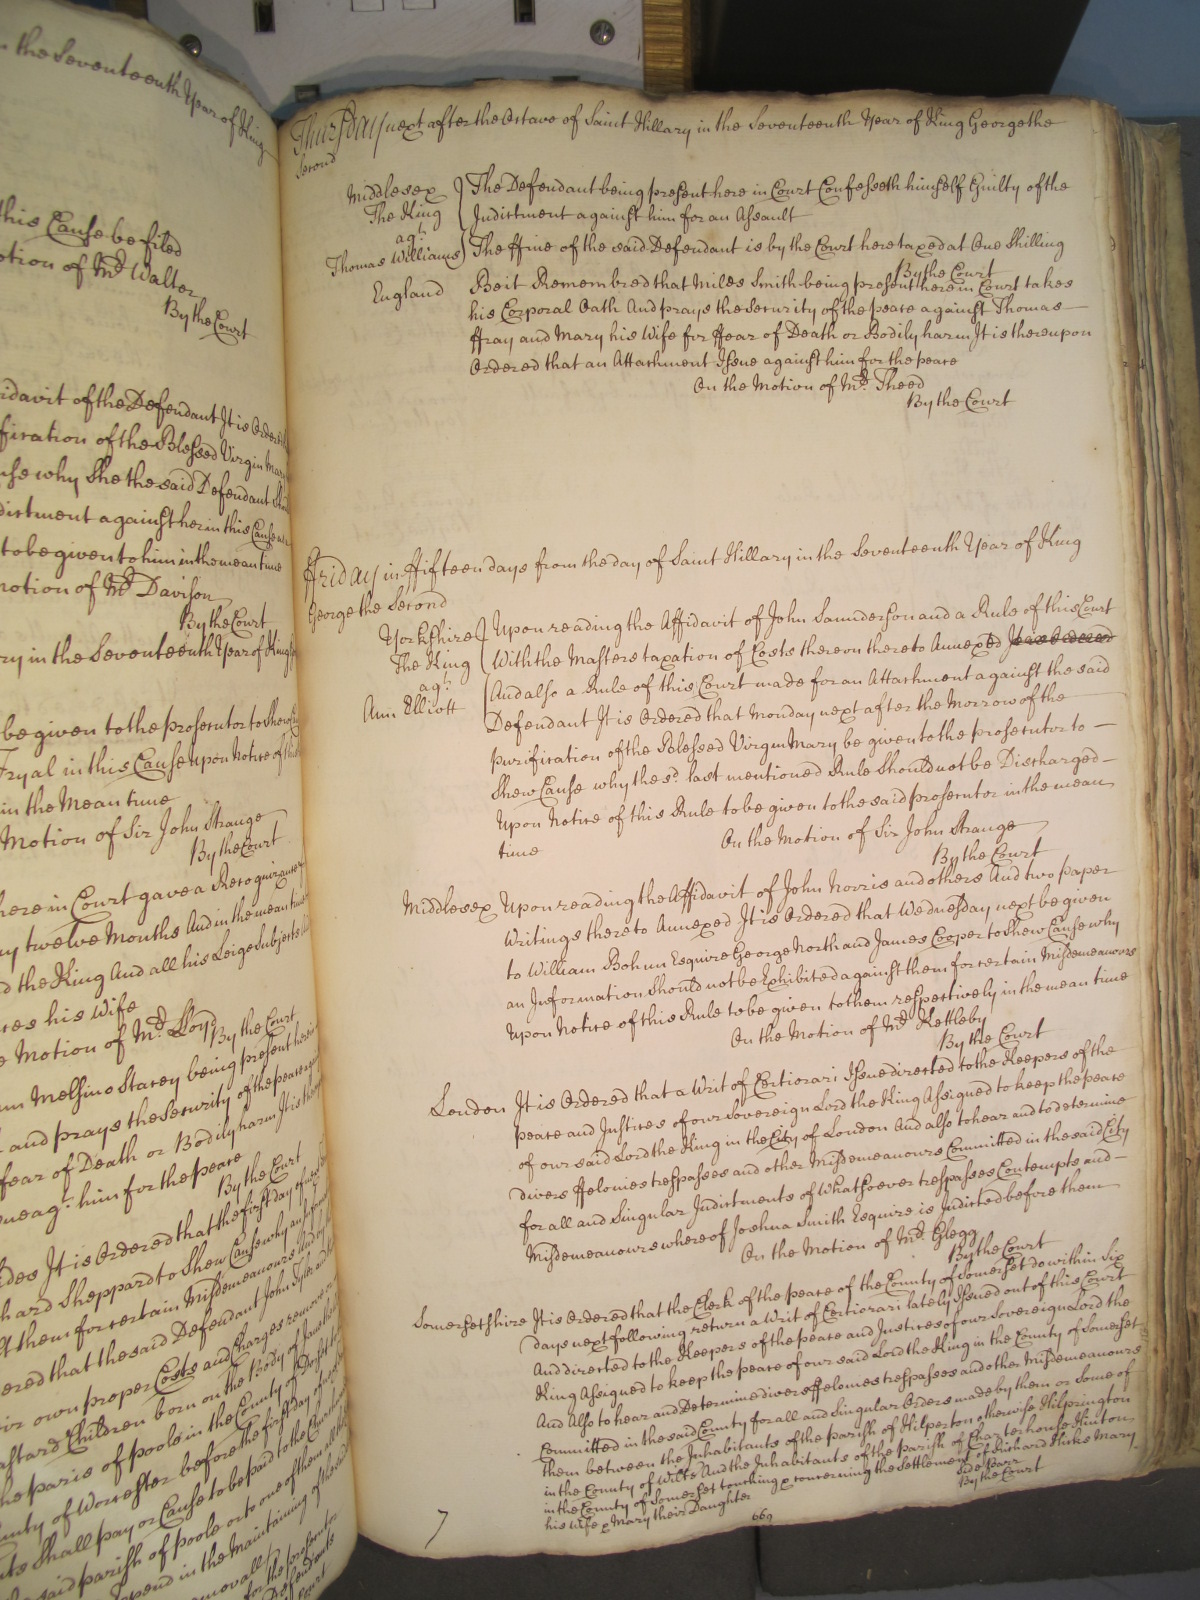 n the Seventeenth Year of King
this Cause be filed
otion of Mr. Walter
By the Court
idavit of the Defendant It is Ordered
fication of the Blessed Virgin Mary
use why She the said Defendant
dictment against her in this Cause
to be given to him in the mean time
Motion of Mr. Davison
By the Court
ry in the Seventeenth Year of King
be given to the prosecutor to Shew
Tryal in this Cause upon Notice of this
in the Mean time
Motion of Sir John Strange
By the Court
here in Court gave a Recognizance
ny twelve Months And in the mean time
d the King And all his Leige Subjects
ces his Wife
e Motion of Mr. Lloyd
By the Court
Stacey being present here in
and prays the Security of the peace
fear of Death or Bodily harm It is
ue agt. him for the peace
By the Court
ides It is Ordered that the first day of
hard Sheppard to Shew Cause why an
st them for certain Misdemeanours
ered that the said Defendant John
eir own proper Costs and Charges remove
astard Children born on the Body of Jane
he paris of poole in the County of Dorset
unty of Worcester before the first day of
nts Shall pay or Cause to be paid to the
he said parish of poole or to one of them
in the Maintaining of
for the prosecutor
Defendants
Court
Thursday next after the Octave of Saint Hillary in the Seventeenth Year of King George the
Second
Middlesex
The King
agt.
Thomas Williams
The Defendant being present here in Court Confesseth himself Guilty of the
Indictment against him for an Assault
The ffine of the said Defendant is by the Court here taxed at One Shilling
By the Court
England Be it Remembred that Miles Smith being present here in Court takes
his Corporal Oath And prays the Security of the peace against Thomas
ffray and Mary his Wife for ffear of Death or Bodily harm It is thereupon
Ordered that an Attachment Issue against him for the peace
On the Motion of Mr. Theed
By the Court
ffriday in ffifteen days from the day of Saint Hillary in the Seventeenth Year of King
George the Second
Yorkshire
The King
agt.
Ann Elliott
Upon reading the Affidavit of John Saunderson and a Rule of this Court
With the Masters taxation of Costs thereon thereto Annexed It is Ordered
And also a Rule of this Court made for an Attachment against the said
Defendant It is Ordered that Monday next after the Morrow of the
purification of the Blessed Virgin Mary be given to the prosecutor to
Shew Cause why the sd. last mentioned Rule Should not be Discharged
Upon Notice of this Rule to be given to the said prosecutor in the mean
time On the Motion of Sir John Strange
By the Court
Middlesex Upon reading the Affidavit of John Norris and others And two paper
Writings thereto Annexed It is Ordered that Wednesday next be given
to William Bohun Esquire George North and James Cooper to Shew Cause why
an Information Should not be Exhibited against them for certain Misdemeanours
Upon Notice of this Rule to be given to them respectively in the mean time
On the Motion of Mr. Kettleby
By the Court
London It is Ordered that a Writ of Certiorari Issue directed to the Keepers of the
peace and Justices of our Sovereign Lord the King Assigned to keep the peace
of our said Lord the King in the City of London And also to hear and to determine
divers ffelonies trespasses and other Misdemeanours Committed in the said City
for all and Singular Indictments of Whatsoever trespasses Contempts and
Misdemeanours whereof Joshua Smith Esquire is Indicted before them
On the Motion of Mr. Glegg
By the Court
Somersetshire It is Ordered that the Clerk of the peace of the County of Somerset do within Six
days next following return a Writ of Certiorari lately Issued out of this Court
And directed to the Keepers of the peace and Justices of our Sovereign Lord the
King Assigned to keep the peace of our said Lord the King in the County of Somerset
And Also to hear and Determine divers ffelonies trespasses and other Misdemeanours
Committed in the said County for all and Singular Orders made by them or Some of
them between the Inhabitants of the parish of Hilperton otherwise Hilprington
in the County of Wilts And the Inhabitants of the parish of Charterhouse Hinton
in the County of Somerset touching & concerning the Settlement of Richard Mary
his Wife & Mary their Daughter
Side Barr
By the Court
7
669